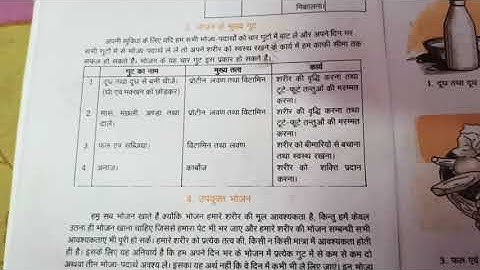 निकालना।
3. भोजन के मुख्य गुट
अपनी सुविधा के लिए यदि हम सभी भोज्य-पदार्थों को चार गुटों में बांट लें और अपने दिन भर
सभी गुटों में से भोज्य पदार्थ ले लें तो अपने शरीर को स्वस्थ रखने के कार्य में हम काफी सीमा तक
सफल हो सकते हैं। भोजन के यह चार गुट इस प्रकार हो सकते हैं।
गुट का नाम मुख्य तत्व कार्य
1. दूध तथा दूध से बनी चीजें। प्रोटीन लवण तथा विटामिन शरीर की वृद्धि करना तथा
(घी एवं मक्खन को छोड़कर) टूटे-फूटे तन्तुओं की मरम्मत
करना।
2. मांस, मछली, अण्डा तथा प्रोटीन लवण तथा विटामिन शरीर की वृद्धि करना तथा
दालें। टूटे-फूटे तन्तुओं की मरम्मत
करना।
3. फल एवं सब्जियां। विटामिन तथा लवण शरीर को बीमारियों से बचाना
तथा स्वस्थ रखना।
4. अनाज। कार्बोज शरीर को शक्ति प्रदान
करना।
4. उपयुक्त भोजन
हम सब भोजन खाते हैं क्योंकि भोजन हमारे शरीर की मूल आवश्यकता है, किन्तु हमें केवल
उतना ही भोजन खाना चाहिए जिससे हमारा पेट भी भर जाए और हमारे शरीर की भोजन सम्बन्धी सभी
आवश्यकताएं भी पूरी हो सकें। हमारे शरीर को प्रत्येक तत्व की, किसी न किसी मात्रा में आवश्यकता होती
ही है। इसके लिए यह अनिवार्य है कि हम अपने दिन भर के भोजन में प्रत्येक गुट में से कम से कम दो
अथवा तीन भोज्य-पदार्थ अवश्य लें। इसका यह अर्थ नहीं कि वे दिन में कभी भी ले लिए जाएं। इन भोज्य
1. दूध तथा दूध
3. फल एवं